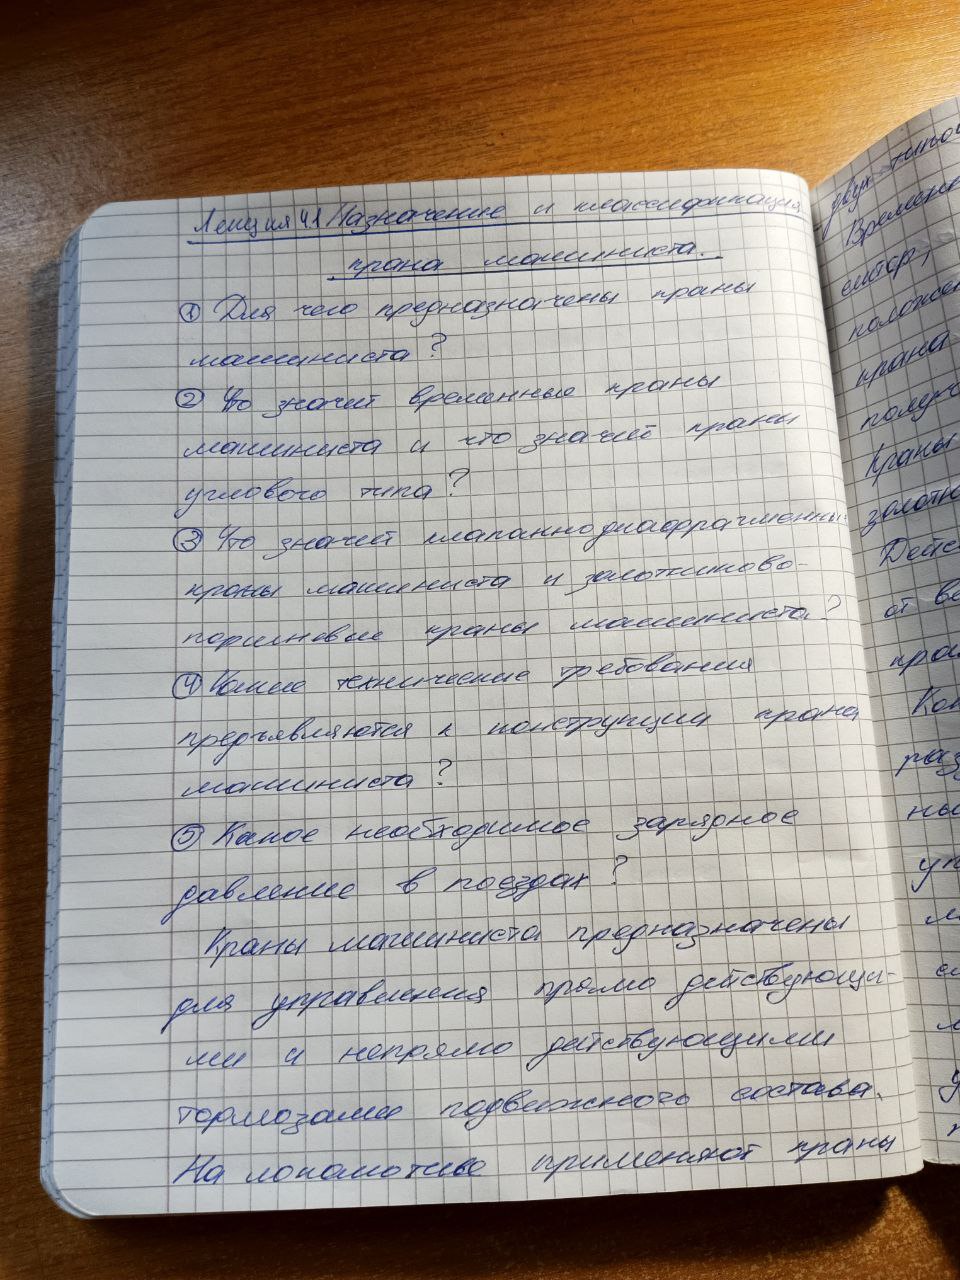 Лекция 4.1 Назначение и классификация
крана машиниста.
① Для чего предназначены краны
машиниста?
② Что значит временные краны
машиниста и что значит краны
углового типа?
③ Что значит клапаннодиафрагменные
краны машиниста и золотниково-
поршневые краны машиниста?
④ Какие технические требования
предъявляются к конструкции крана
машиниста?
⑤ Какое необходимое зарядное
давление в поездах?
Краны машиниста предназначены
для управления прямо действующи-
ми и непрямо действующими
тормозами подвижного состава.
На локомотиве применяют краны
двух типов
Времен
положе
крана
Краны
золотн
Дейс
от ве